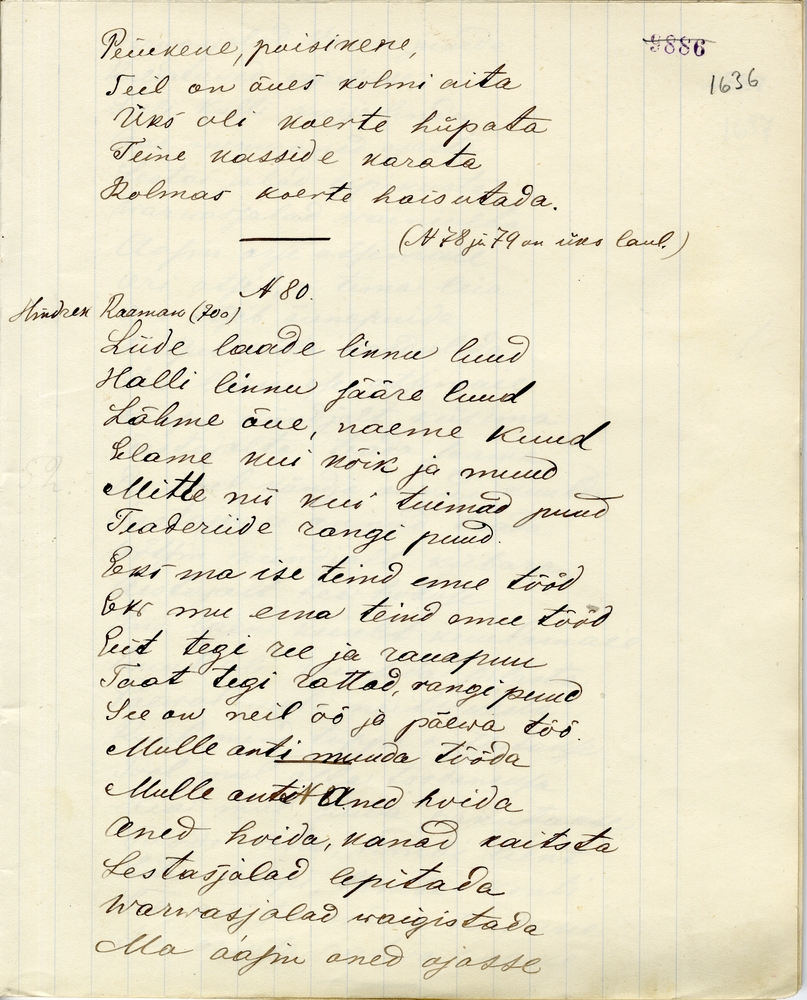 9886
1636
Peiukene, poisikene,
Teil on õues kolmi aita
Üks oli koerte hüpata
Teine kasside karata
Kolmas koerte haisutada.
(N 78 ja 79 on üks laul.)
N 80.
Hindrek Raaman (70a)
Liide laade linnu luud
Halli linnu jääre luud
Lähme õue, naeme kuud
Elame kui kõik ja muud
Mitte nii kui tuimad puud
Teaderiide rangi puud.
Eks ma ise teind emu tööd
Eks mu ema teind muu tööd
Eit tegi ree ja rauapuu
Taat tegi rattad, rangi puud
See on neil öö ja päewa töö.
Mulle anti muuda tööda
Mulle anti aned hoida
Aned hoida, kanad kaitsta
Lestasjalad lepitada
Warwasjalad waigistada
Ma aasin aned ojasse